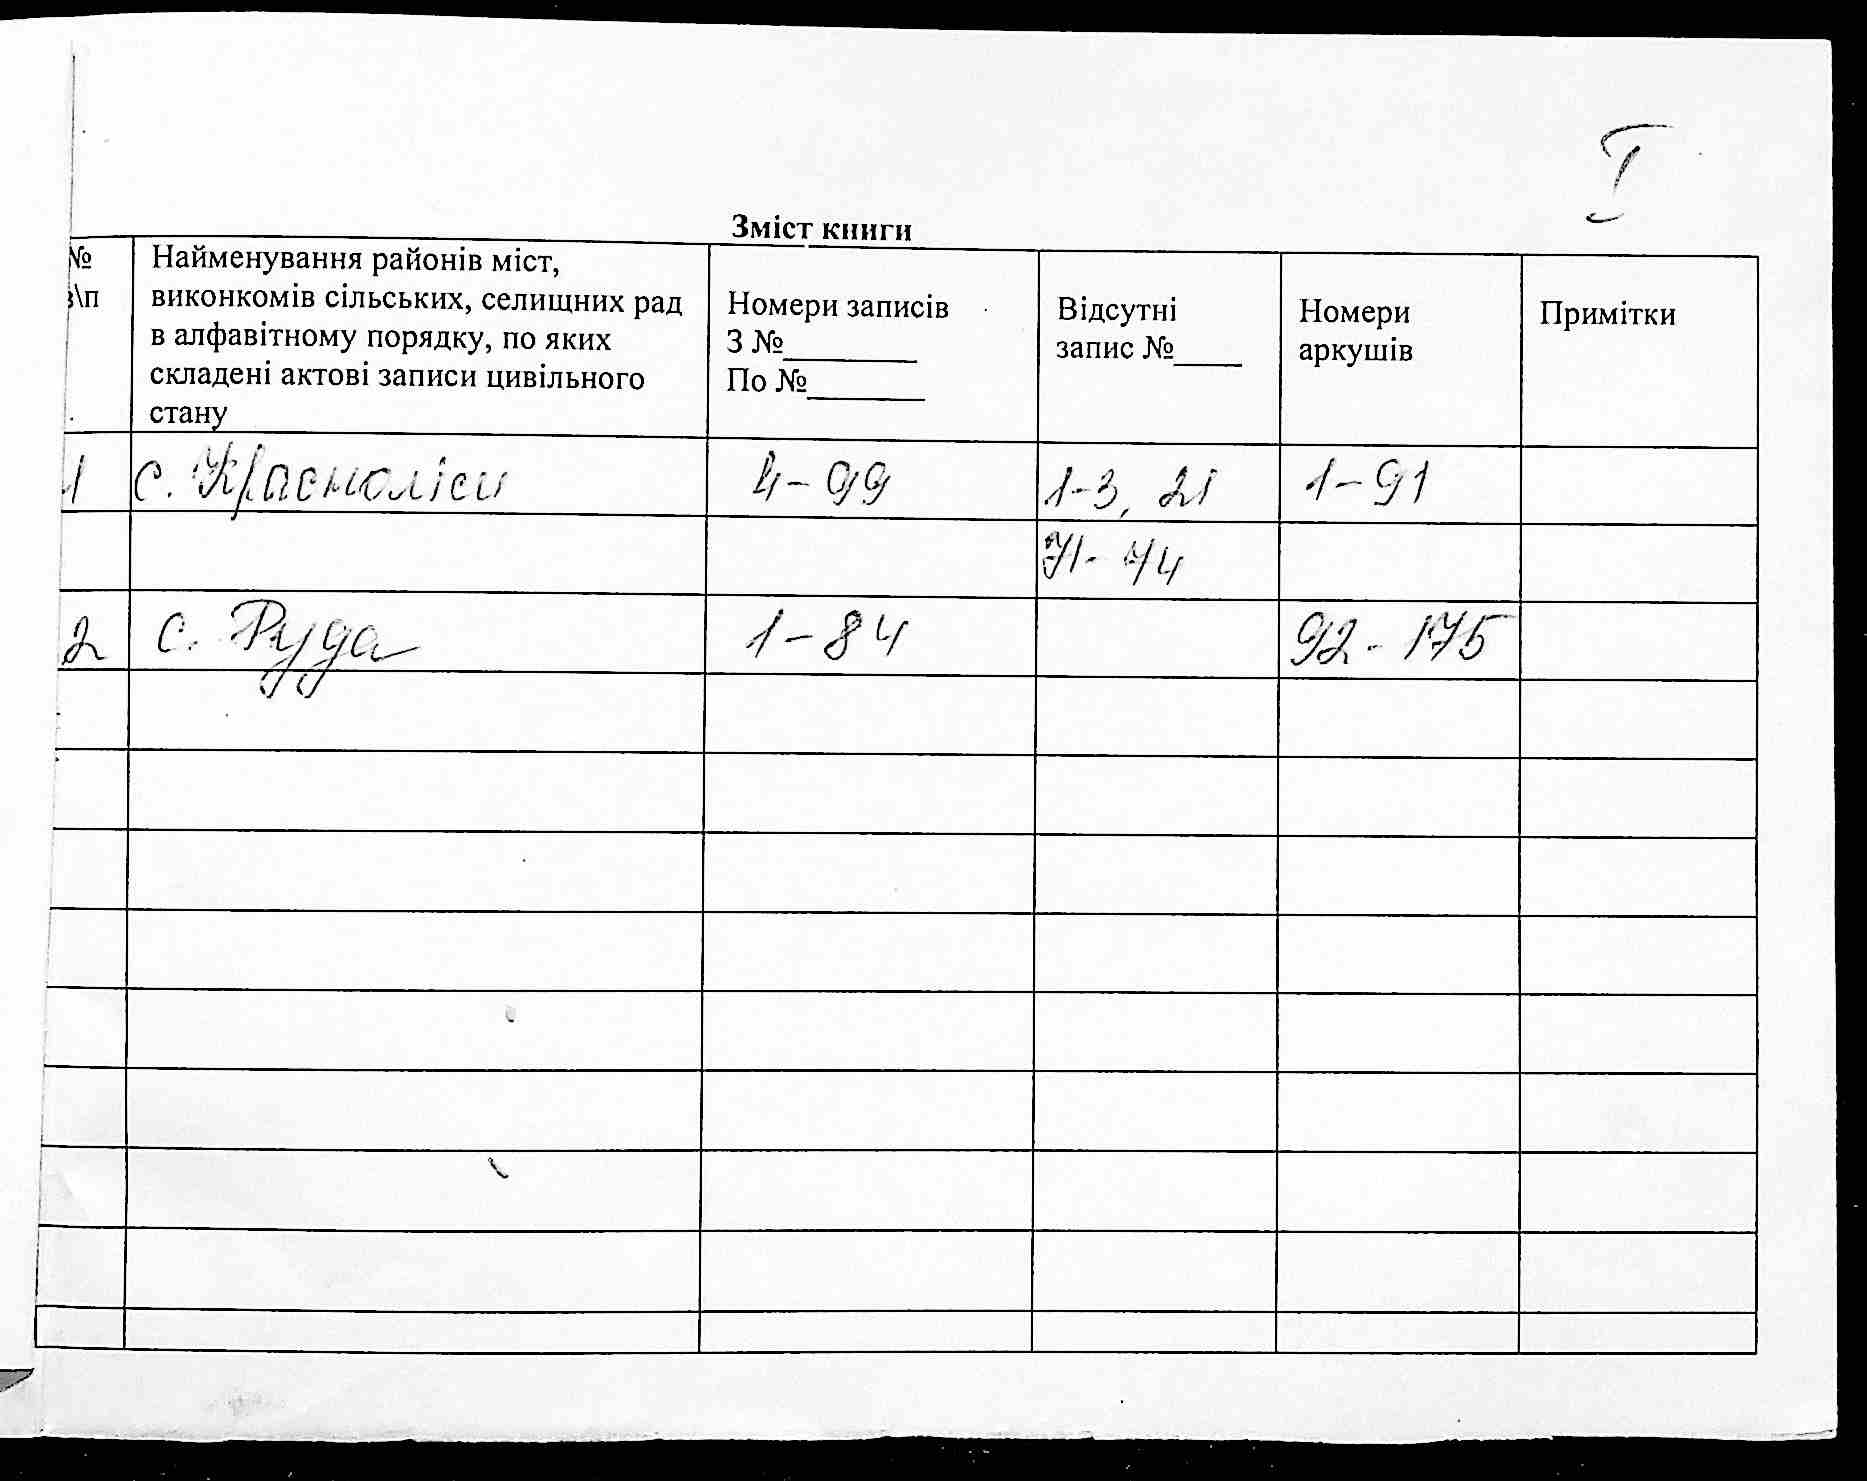 I
Зміст книги
№
з\п
Найменування районів міст,
виконкомів сільських, селищних рад
в алфавітному порядку, по яких
складені актові записи цивільного
стану
Номери записів
З №________
По №_______
Відсутні
запис №____
Номери
аркушів
Примітки
1 с. Красноліси 4-99 1-3, 21 1-91
71-74
2 с. Руда 1-84 92-175